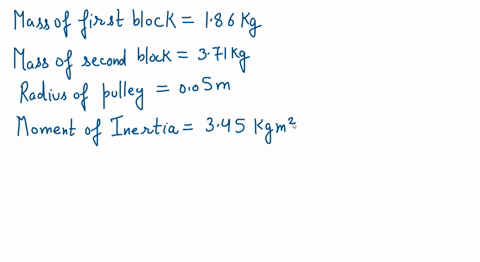 Mass of first block = 1.86 Kg
Mass of second block = 3.71 Kg
Radius of pulley = 0.05 m
Moment of Inertia = 3.45 Kgm²